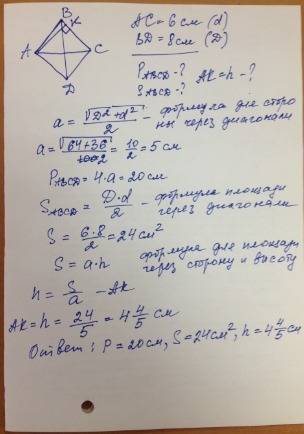 B
K
A
C
D
AC = 6 см (d)
BD = 8 см (D)
P_ABCD - ?
AK = h - ?
S_ABCD - ?
a = √(D² + d²)/2 – формула для сторо
ны через диагонали
a = √(64+36)/2 = 10/2 = 5 см
P_ABCD = 4·a = 20 см
S_ABCD = D·d/2 – формула площади
через диагонали
S = 6·8/2 = 24 см²
S = a·h формула для площади
через сторону и высоту
h = S/a – AK
AK = h = 24/5 = 4 4/5 см
Ответ: P = 20 см, S = 24 см², h = 4 4/5 см